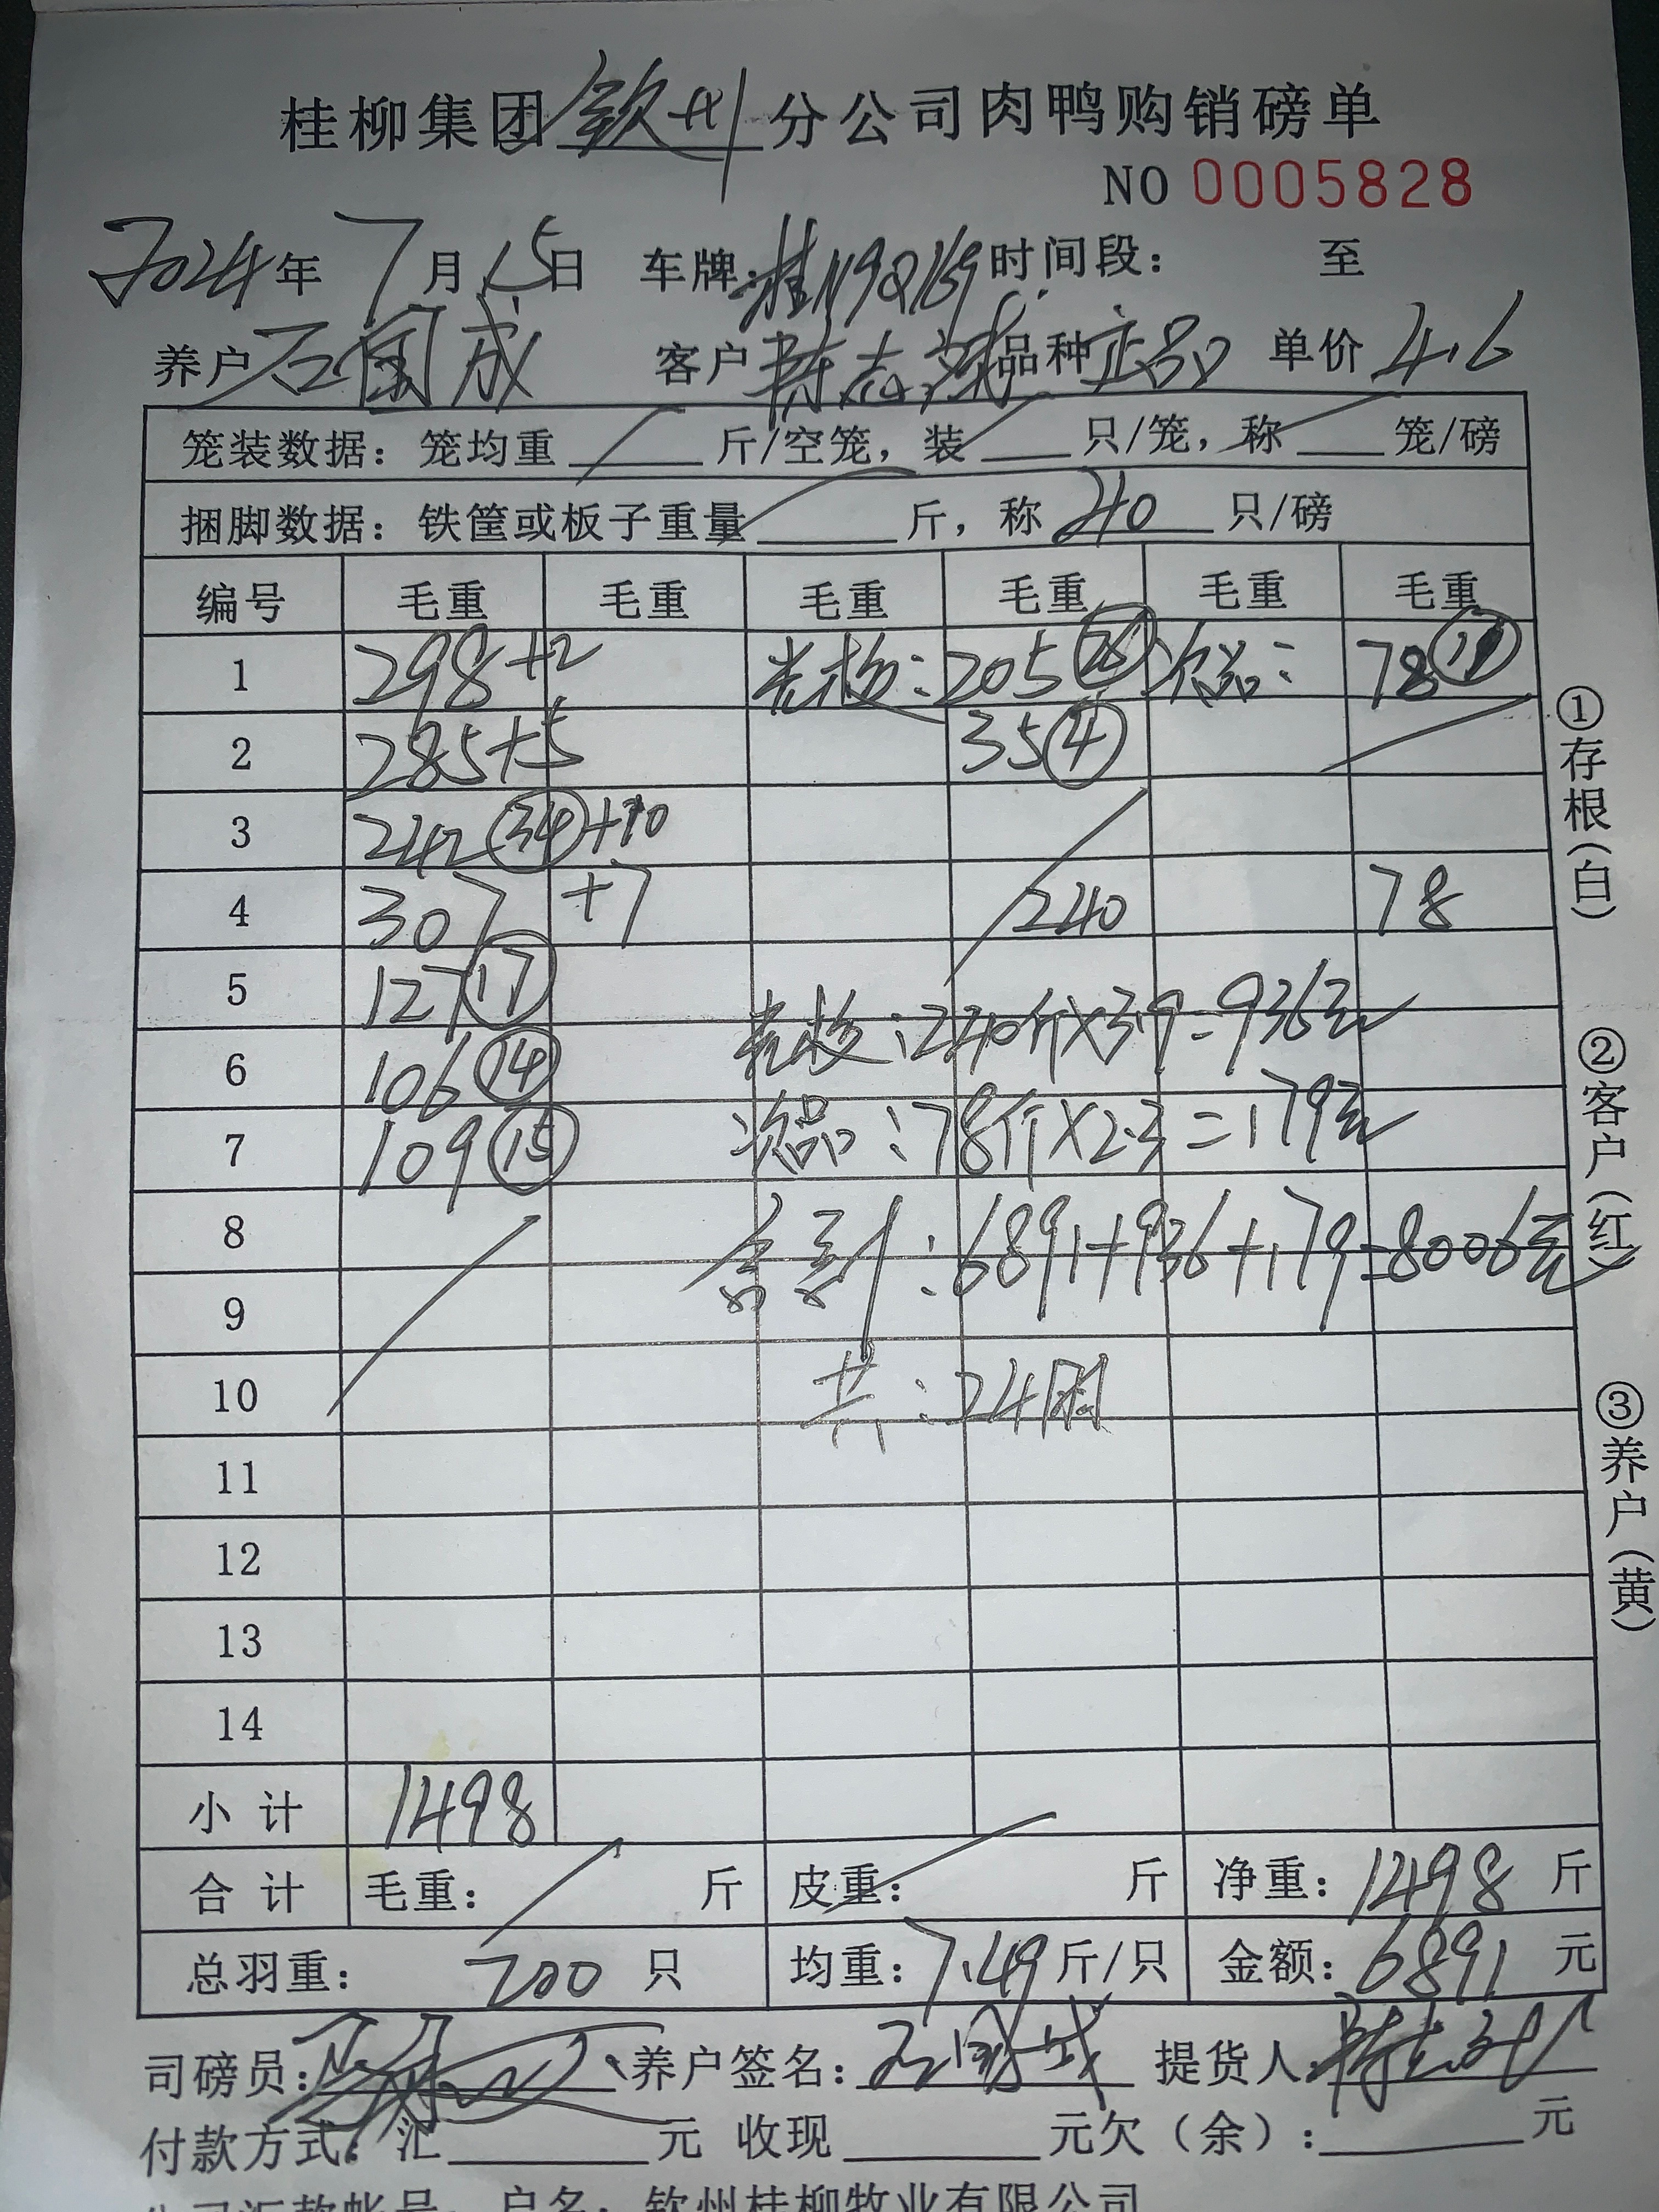 桂柳集团钦州分公司肉鸭购销磅单
NO 0005828
2024年7月15日 车牌:桂N9Q169 时间段: 至
养户石国成 客户陈志 品种正品 单价4.6
笼装数据:笼均重 斤/空笼,装 只/笼,称 笼/磅
捆脚数据:铁筐或板子重量 斤,称 40 只/磅
编号 毛重 毛重 毛重 毛重 毛重 毛重
1 298+2 : 205 次品: 78
2 285+5 35 ④
3 242 ㉞ +10
4 307 +7 240 78
5 127 ⑰
:240斤×3.9=936元
6 106 ⑭
7 109 ⑮ 次品:78斤×2.3=179元
8 合到:6891+936+179=8006元
9
10 共:24
11
12
13
14
小计 1498
合计 毛重: 斤 皮重: 斤 净重:1498斤
总羽重:200只 均重:7.49斤/只 金额:6891元
司磅员: 养户签名:石国成 提货人:陈志
付款方式:汇 元 收现 元欠(余): 元
公司汇款帐号:户名:钦州桂柳牧业有限公司
①存根(白)
②客户(红)
③养户(黄)